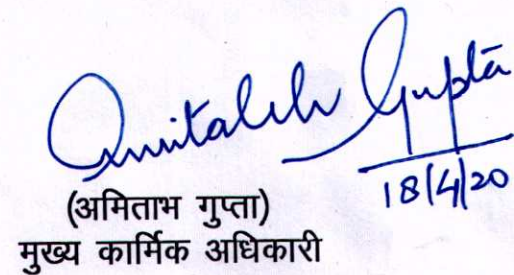 Amitabh Gupta
18/4/20
(अमिताभ गुप्ता)
मुख्य कार्मिक अधिकारी